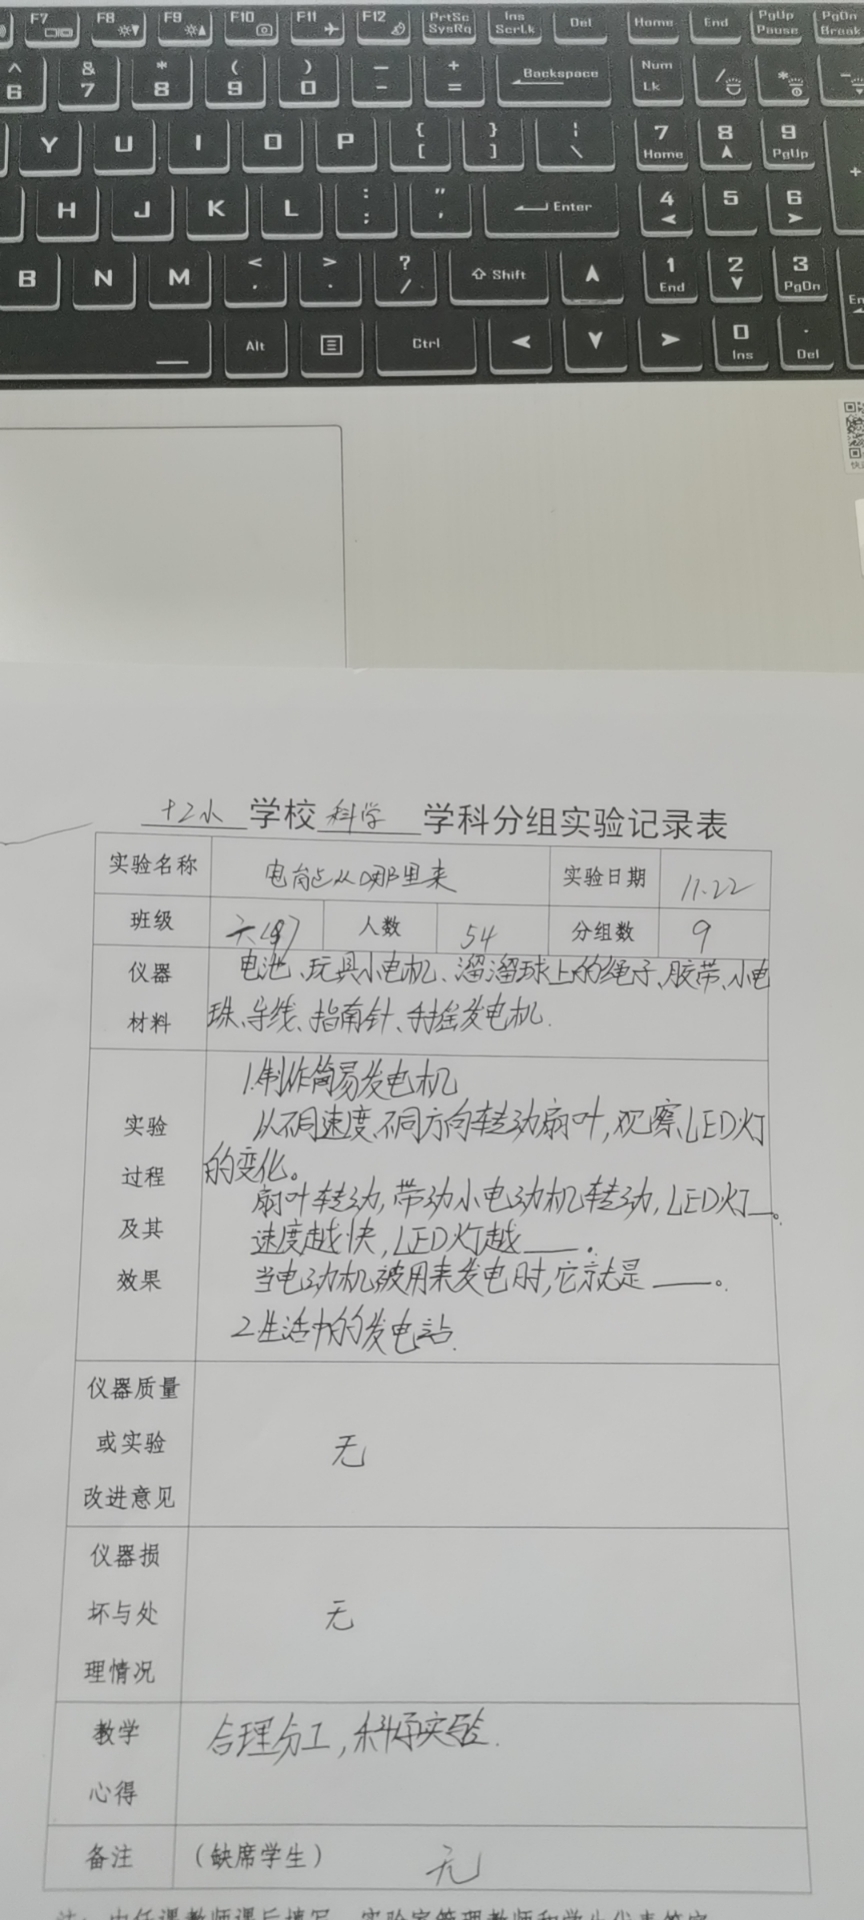 F7 F8 F9 F10 F11 F12 PrtSc SysRq Ins ScrLk Del Home End PgUp Pause PgDn Break
^ 6 & 7 * 8 ( 9 ) 0 _ - + = Backspace Num Lk / * -
Y U I O P { [ } ] ¦ \ 7 Home 8 9 PgUp +
H J K L : ; " ' Enter 4 5 6
B N M < , > . ? / Shift 1 End 2 3 PgDn En
Alt Ctrl 0 Ins . Del
十2小 学校 科学 学科分组实验记录表
实验名称 电能从哪里来 实验日期 11.22
班级 人数 54 分组数 9
仪器材料 电池、玩具小电机、溜溜球上的绳子、胶带、小电
珠、导线、指南针、手摇发电机.
实验过程及其效果 1.制作简易发电机
从不同速度、不同方向转动扇叶,观察LED灯
的变化。
扇叶转动,带动小电动机转动,LED灯__。
速度越快,LED灯越___.
当电动机被用来发电时,它就是___。
2.生活中的发电站.
仪器质量或实验改进意见 无
仪器损坏与处理情况 无
教学心得 合理分工,科学实验.
备注 (缺席学生) 无